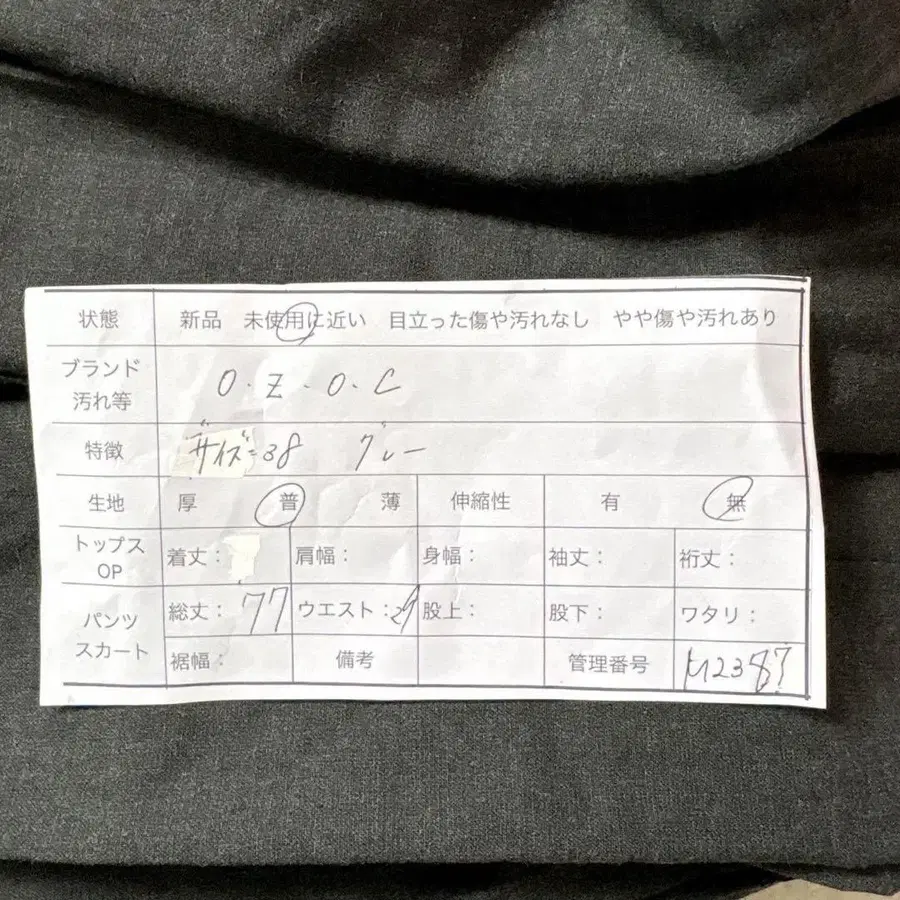 状態 新品 未使用に近い 目立った傷や汚れなし やや傷や汚れあり
ブランド 汚れ等 O.Z.O.C
特徴 サイズ=38 グレー
生地 厚 普 薄 伸縮性 有 無
トップス OP 着丈: 肩幅: 身幅: 袖丈: 裄丈:
パンツ スカート 総丈:77 ウエスト: 股上: 股下: ワタリ:
裾幅: 備考 管理番号 M2387